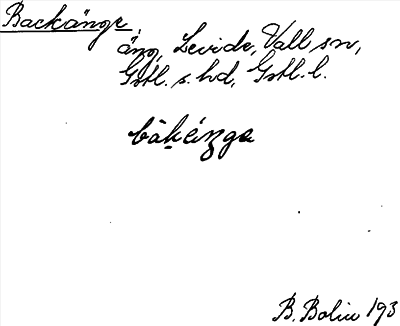 Backänge,
äng, Levide, Vall sn,
Gotl. s. hd, Gotl. l.
bàkéŋga
B. Bolin 193